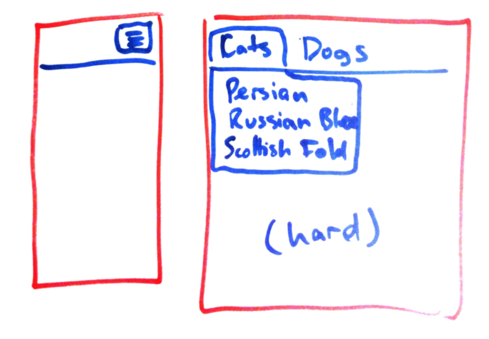 Cats Dogs
Persian
Russian Blue
Scottish Fold
(hard)